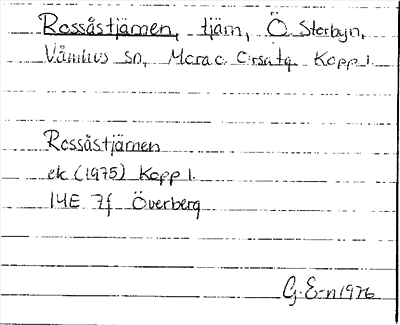 Rossåstjärnen, tjärn, Ö Storbyn,
Våmhus sn, Mora o. Orsa tg Kopp l.
Rossåstjärnen
ek (1975) Kopp l.
14E 7f Överberg
G. E-n 1976